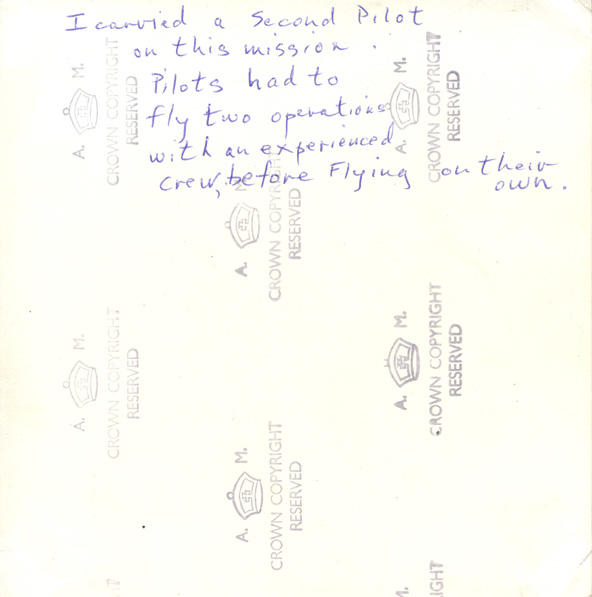 I carried a Second Pilot
on this mission.
Pilots had to
fly two operations
with an experienced
crew, before Flying on their
own.
A. M.
CROWN COPYRIGHT
RESERVED
A. M.
CROWN COPYRIGHT
RESERVED
A. M.
CROWN COPYRIGHT
RESERVED
A. M.
CROWN COPYRIGHT
RESERVED
A. M.
CROWN COPYRIGHT
RESERVED
A. M.
CROWN COPYRIGHT
RESERVED
M.
IGHT